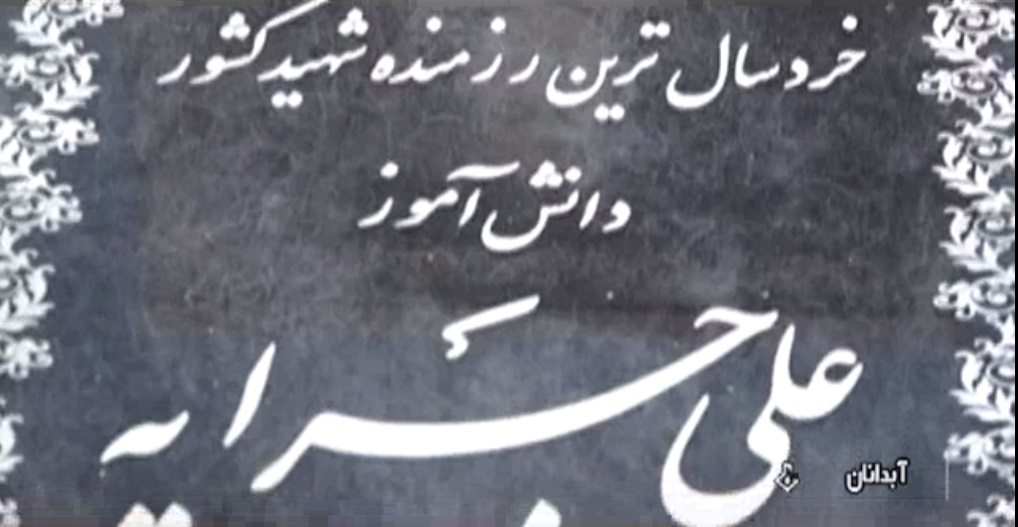 خردسال ترین رزمنده شهید کشور
دانش آموز
علی جرایه
آبدانان